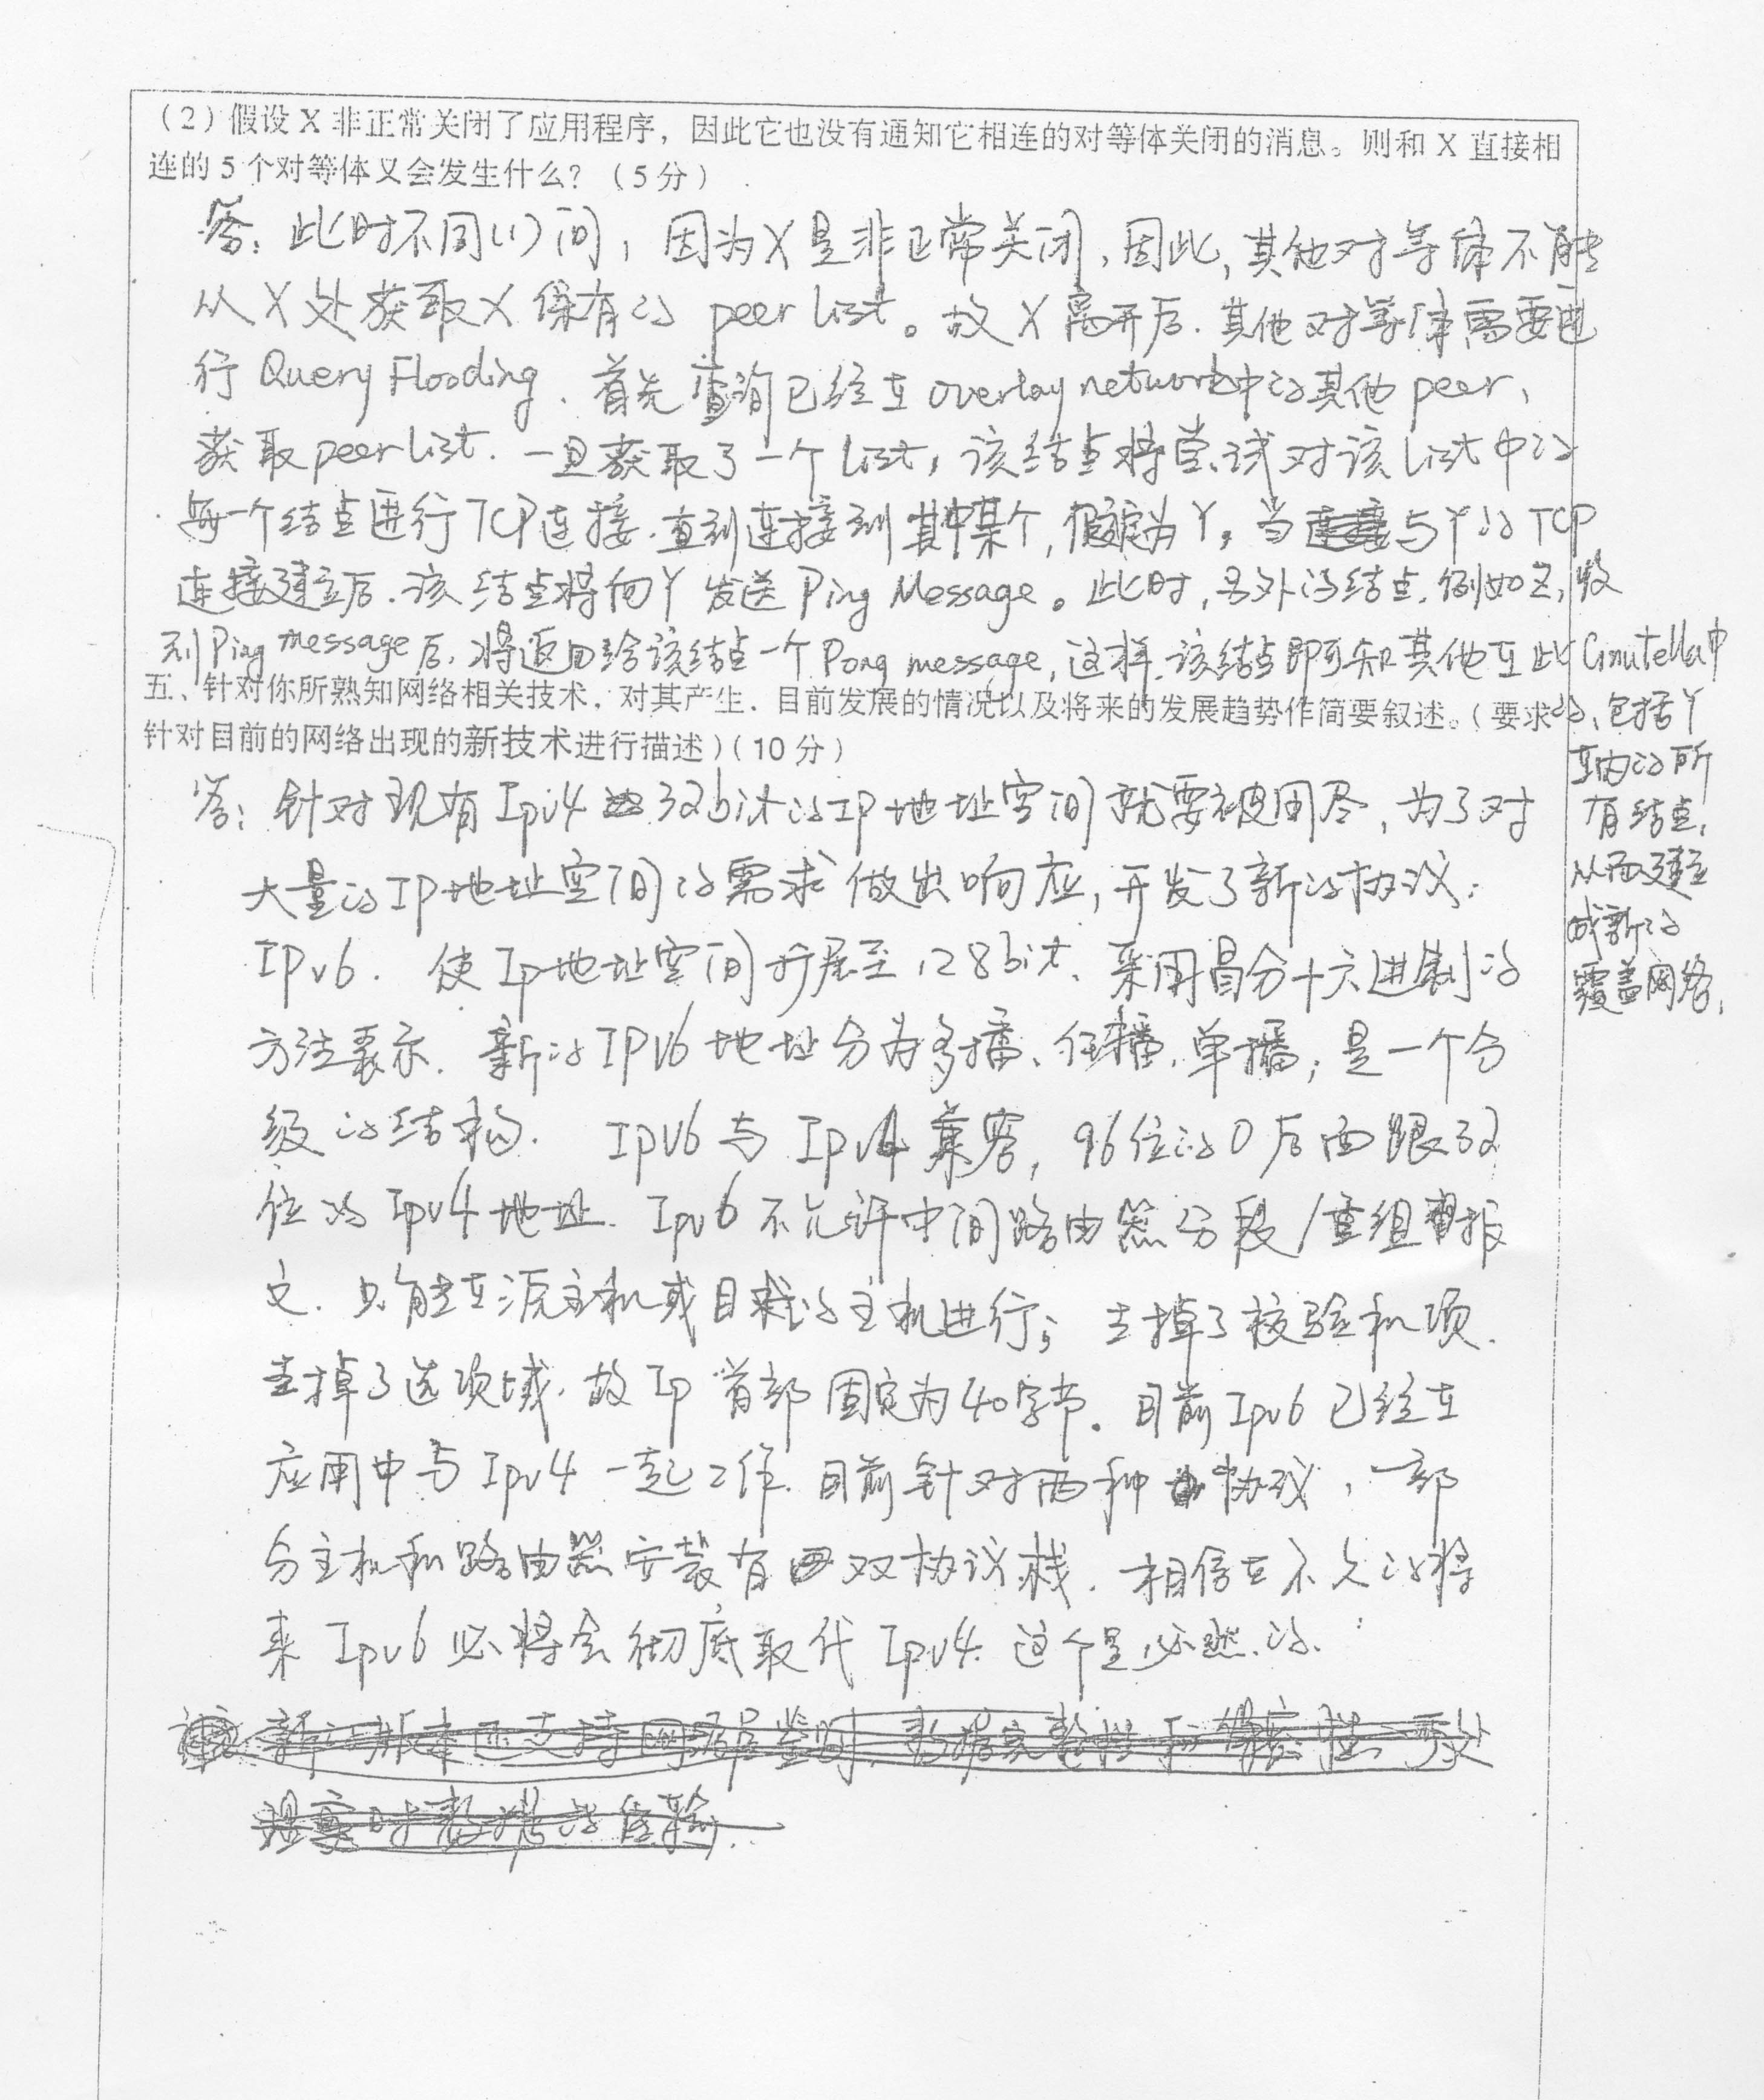 （2）假设 X 非正常关闭了应用程序，因此它也没有通知它相连的对等体关闭的消息。则和 X 直接相
连的 5 个对等体又会发生什么？（5 分）
答：此时不同(1)问，因为X是非正常关闭，因此，其他对等体不能
从X处获取X保有的 peer list。故X离开后，其他对等体需要进
行 Query Flooding．首先查询已经在overlay network中的其他 peer，
获取peer list．一旦获取了一个list，该结点将尝试对该list中的
每一个结点进行TCP连接．直到连接到其中某个，假定为Y。当与Y的TCP
连接建立后．该结点将向Y发送 Ping Message。此时，另外的结点．例如Z，收
到Ping message后，将返回给该结点一个Pong message，这样．该结点即可知其他在此Gnutella中
的、包括Y
在内的所
有结点，
从而建立
成新的
覆盖网络．
五、针对你所熟知网络相关技术，对其产生、目前发展的情况以及将来的发展趋势作简要叙述。（要求
针对目前的网络出现的新技术进行描述）（10 分）
答：针对现有Ipv4 32bit的IP地址空间就要被用尽，为了对
大量的IP地址空间的需求做出响应，开发了新的协议：
IPv6．使Ip地址空间扩展至128bit、采用冒分十六进制的
方法表示．新的IPV6地址分为多播、任播、单播；是一个分
级的结构．IPV6与IPV4兼容，96位的0后面跟32
位的Ipv4地址．Ipv6不允许中间路由器分段/重组报
文．只能在源主机或目的主机进行；去掉了校验和项．
去掉了选项域．故IP首部固定为40字节。目前Ipv6已经在
应用中与Ipv4一起工作．目前针对两种协议，一部
分主机和路由器安装有双协议栈．相信在不久的将
来Ipv6必将会彻底取代Ipv4．这个是必然的．